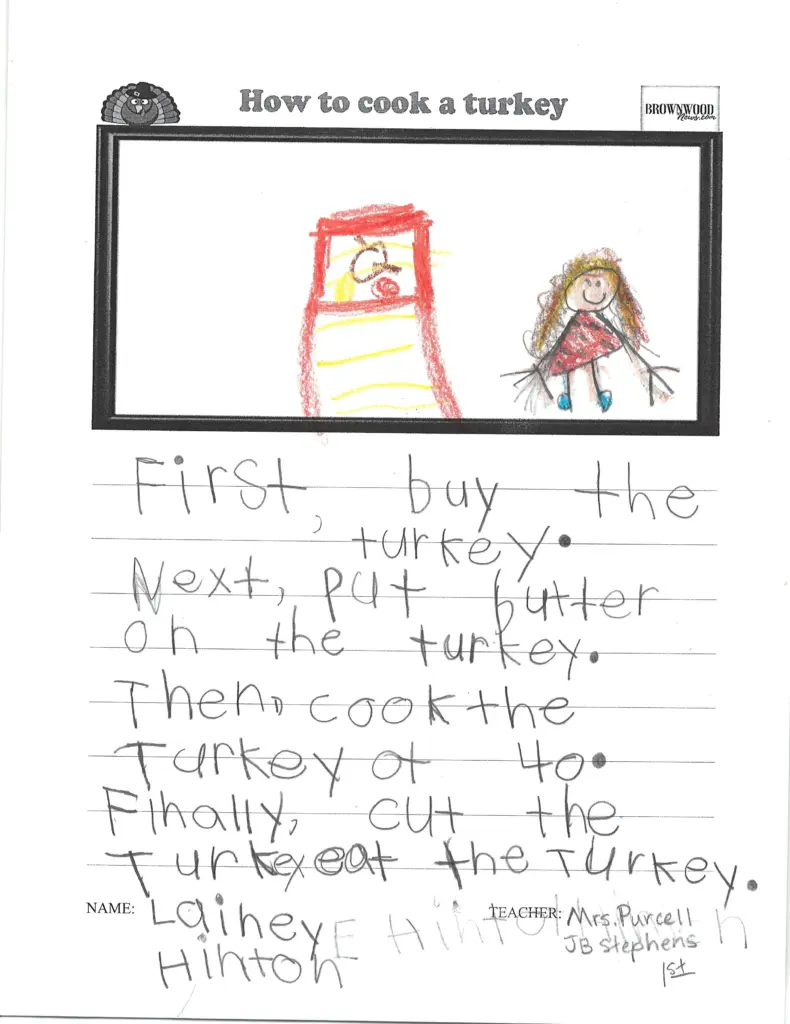 How to cook a turkey
BROWNWOOD
News.com
First, buy the
turkey.
Next, put butter
on the turkey.
Then, cook the
Turkey at 40.
Finally, cut the
Turkey eat the Turkey.
NAME: Lainey
Hinton
E Hinton
TEACHER: Mrs. Purcell
JB Stephens
1st